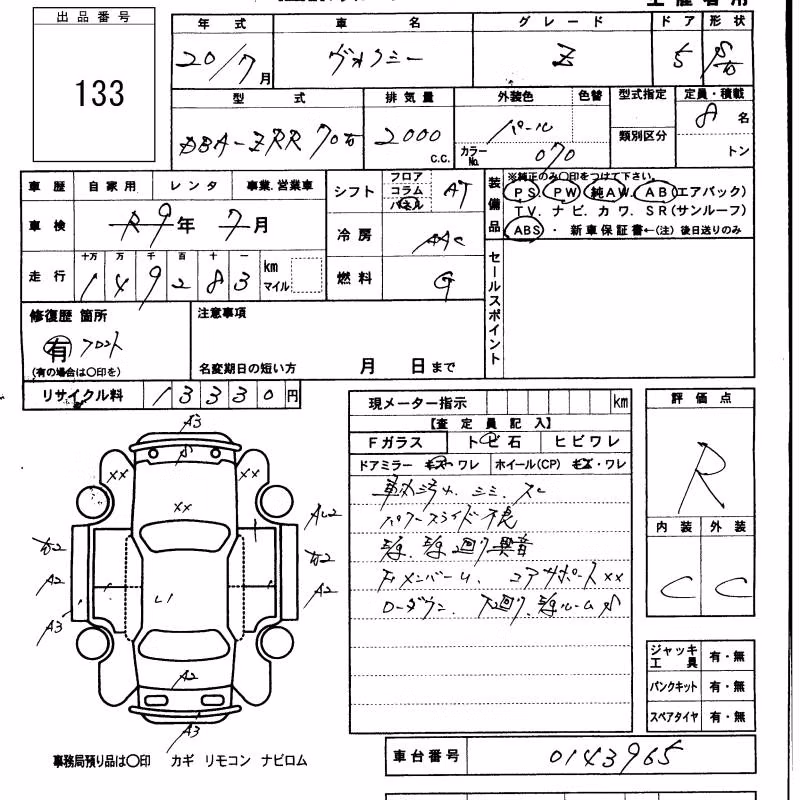 出品番号
133
年式 車名 グレード ドア 形状
20/7月 ヴォクシー Z 5
型式 排気量 外装色 色替 型式指定 定員・積載
DBA-ZRR70 2000 C.C. パール カラーNo. 070 類別区分 8名 トン
車歴 自家用 レンタ 事業.営業車
車検 R9年7月
走行 十万 万 千 百 十 一
149283 km マイル
シフト フロア コラム パネル AT
冷房 AAC
燃料 G
装備品
※純正のみ〇印をつけて下さい。
PS. PW. 純AW. AB(エアバック)
TV. ナビ. カワ. SR(サンルーフ)
ABS・新車保証書←(注)後日送りのみ
セールスポイント
修復歴 箇所
有 フロント
(有の場合は〇印を)
注意事項
名変期日の短い方 月 日まで
リサイクル料 13330円
現メーター指示 km
【査定員記入】
Fガラス トビ石 ヒビワレ
ドアミラー キズ・ワレ ホイール(CP) キズ・ワレ
パワースライド不良
異音
コアサポートxx
ローダウン. 下廻り.
評価点
R
内装 外装
C C
ジャッキ工具 有・無
パンクキット 有・無
スペアタイヤ 有・無
A3
xx xx
xx
A2 A2
A3
L1
A2
A3
事務局預り品は〇印 カギ リモコン ナビロム
車台番号 0143965